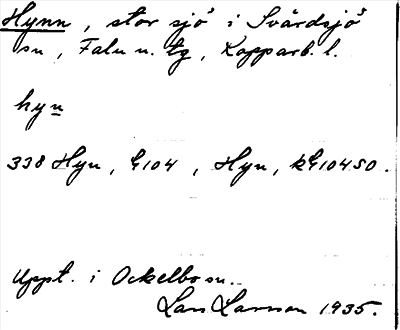 Hynn, stor sjö i Svärdsjö
sn, Falu n. tg, Kopparb. l.
hyn
338 Hyn, G104, Hyn, kG104SO.
Uppt. i Ockelbo sn.
Lars Larsson 1935.